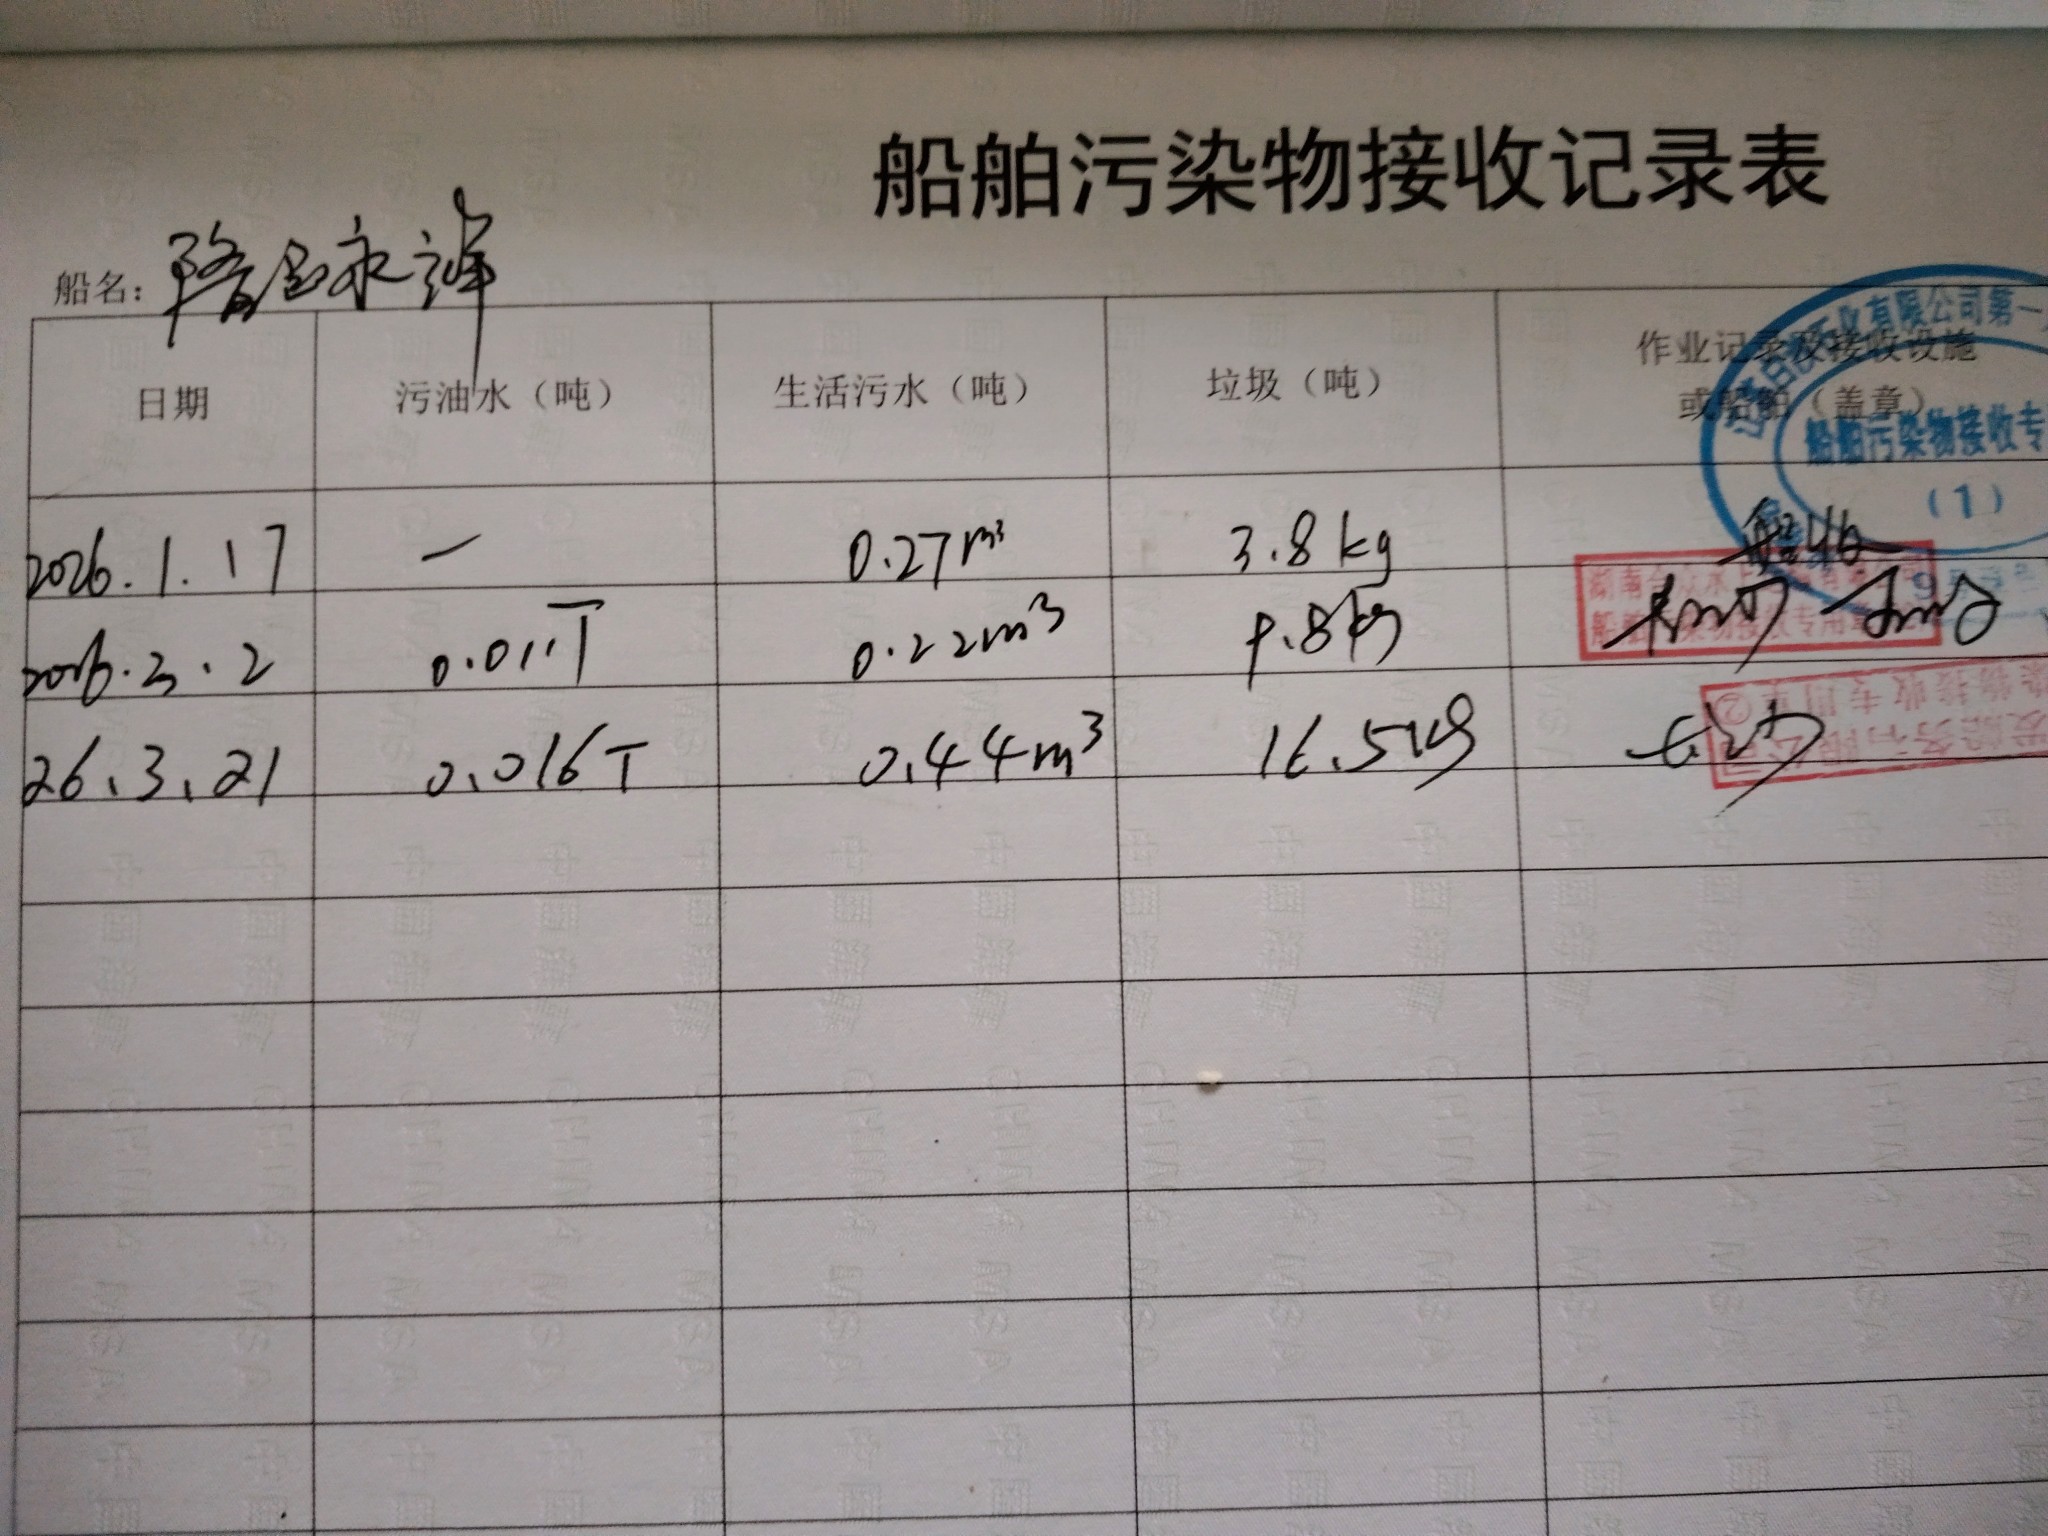 船舶污染物接收记录表
船名:
日期 污油水（吨） 生活污水（吨） 垃圾（吨） 作业记录及接收设施
或船舶（盖章）
有限公司第一
船舶污染物接收专
（1）
2026.1.17 — 0.27m³ 3.8kg
2026.3.2 0.011T 0.22m³ 9.8kg
湖南
船舶污染物接收专用章
26.3.21 0.016T 0.44m³ 16.5kg
染物接收专用章②
有限公司